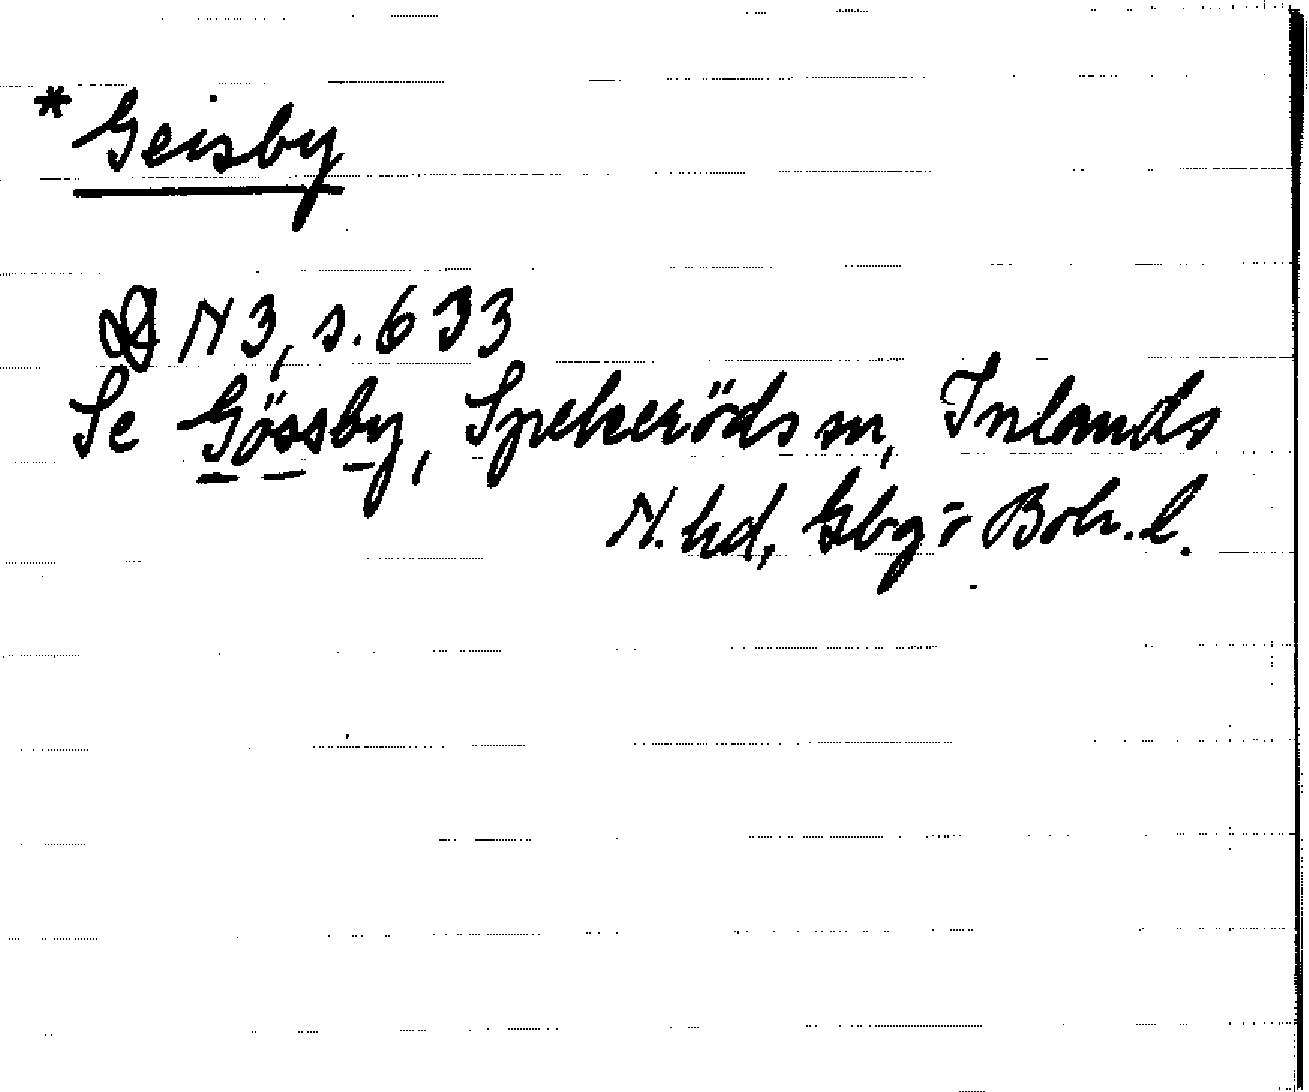 *Geisby
DN 3, s. 633
Se Gössby, Spekeröds sn, Inlands
N. hd, Gbg o Boh. l.